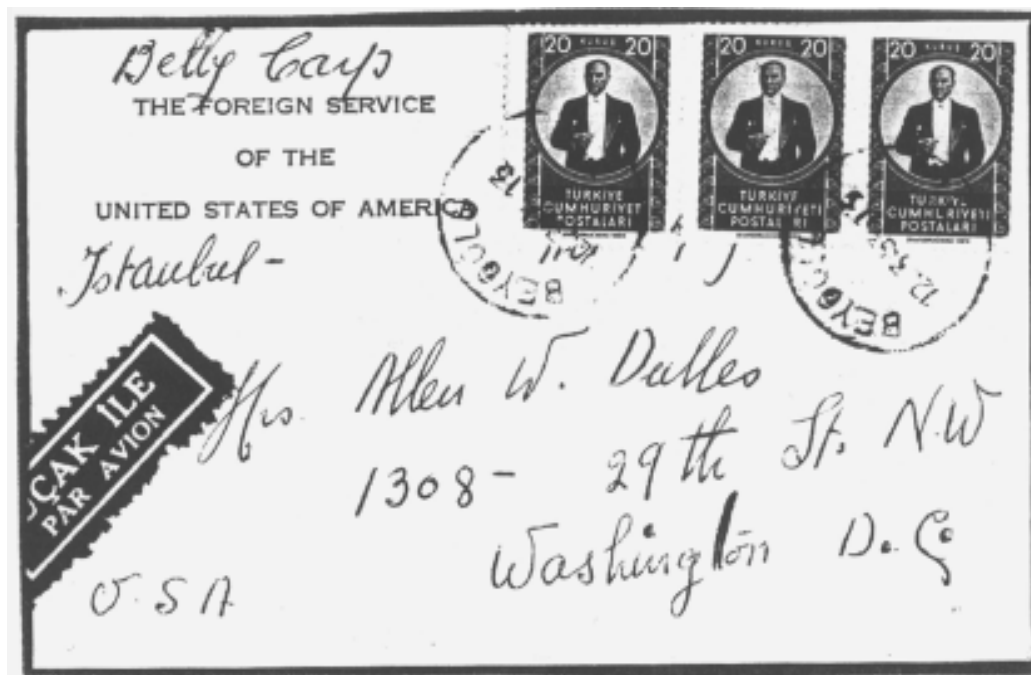 Betty Carp
THE FOREIGN SERVICE
OF THE
UNITED STATES OF AMERICA
Istanbul -
20 KURUŞ 20
TÜRKİYE
CUMHURİYETİ
POSTALARI
20 KURUŞ 20
TÜRKİYE
CUMHURİYETİ
POSTALARI
20 KURUŞ 20
TÜRKİYE
CUMHURİYETİ
POSTALARI
BEYOĞLU
13
BEYOĞLU
UÇAK İLE
PAR AVION
Mrs. Allen W. Dulles
1308 - 29th St. N.W
Washington D. C.
U.S A